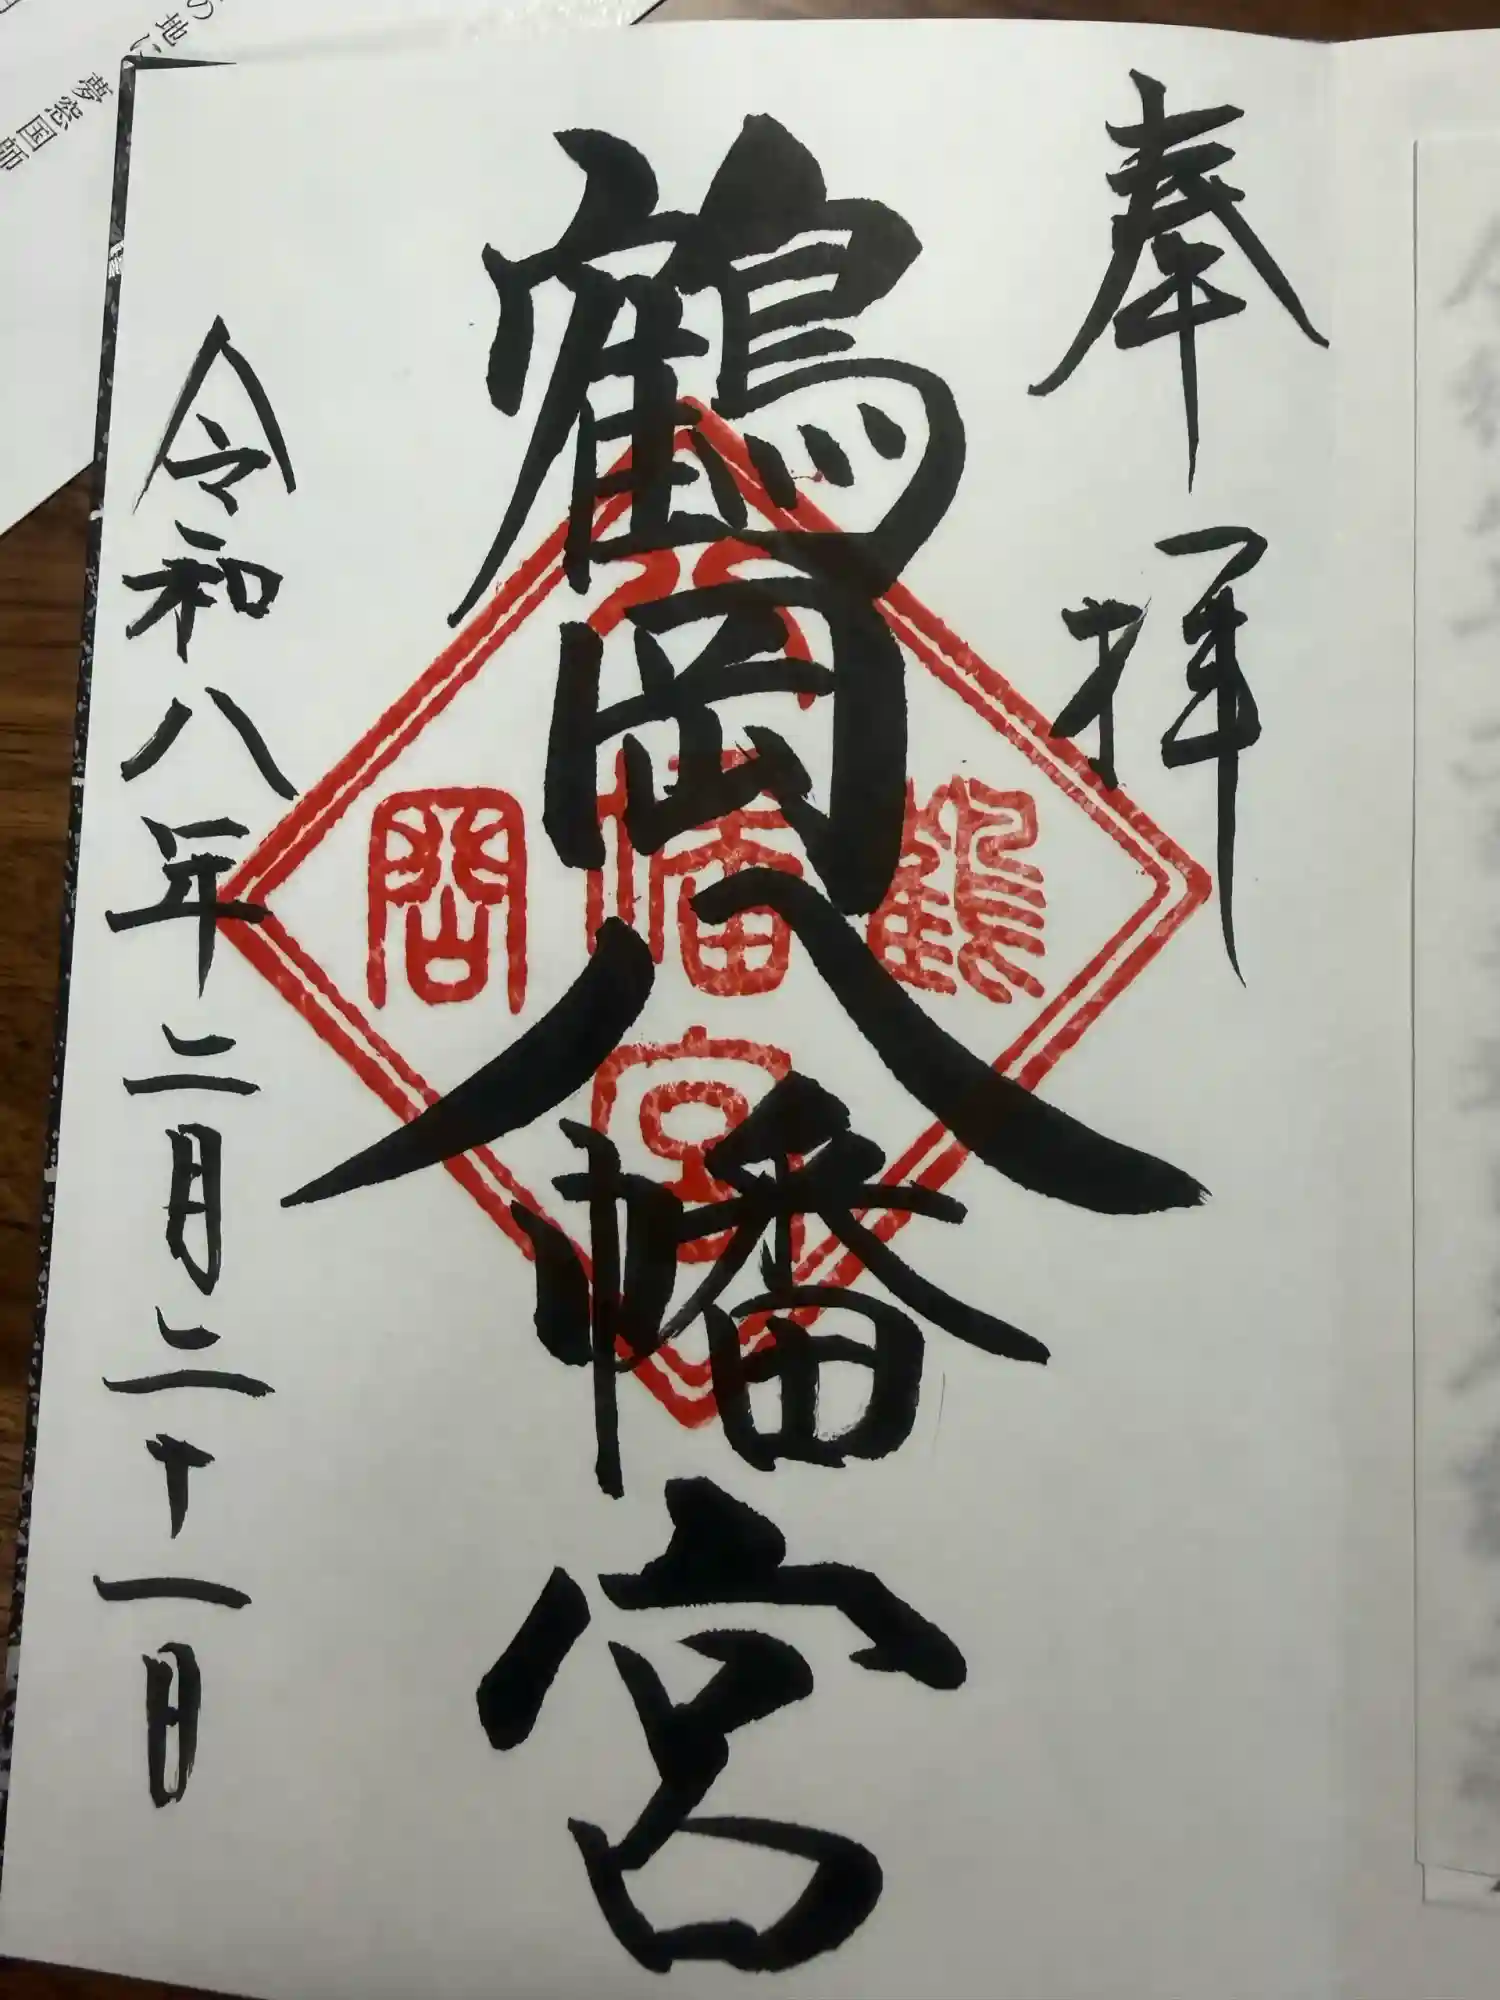 奉拝
鶴岡八幡宮
令和八年二月二十一日
鶴
岡
八
幡
宮
の地に
夢窓国師